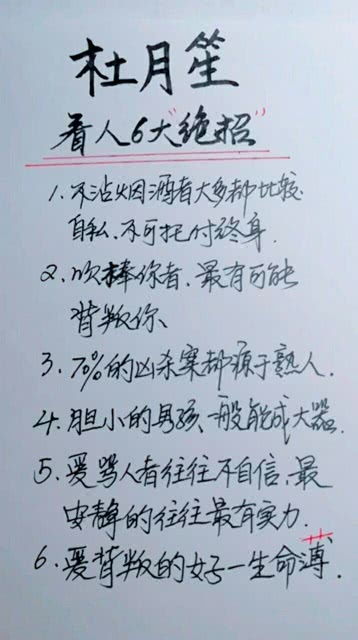 杜月笙
看人6大“绝招”
1.不沾烟酒者大多都比较
自私.不可托付终身.
2.吹捧你者.最有可能
背叛你、
3.70%的凶杀案都源于熟人.
4.胆小的男孩一般能成大器.
5.爱骂人者往往不自信.最
安静的往往最有实力.
6.爱背叛的女子一生命薄.